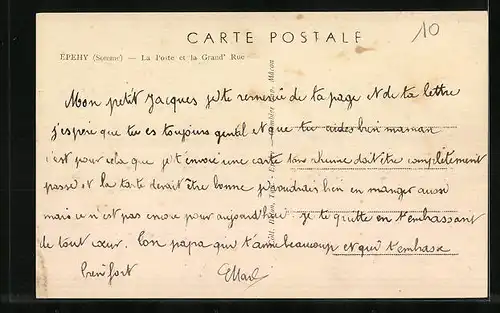 CARTE POSTALE
10
ÉPEHY (Somme) — La Poste et la Grand' Rue
Mon petit Jacques je te remercie de ta page et de ta lettre
j'espère que tu es toujours gentil et que tu aides bien maman
c'est pour cela que je t'envoie une carte ton rhume doit être complètement
passé et la tarte devait être bonne je voudrais bien en manger aussi
mais ce n'est pas encore pour aujourd'hui je te quitte en t'embrassant
de tout cœur. Ton papa que t'aime beaucoup et qui t'embrasse
bien fort
Édit.